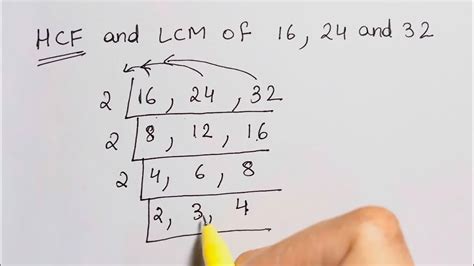 HCF and LCM of 16, 24 and 32
2 16, 24, 32
2 8, 12, 16
2 4, 6, 8
2, 3, 4